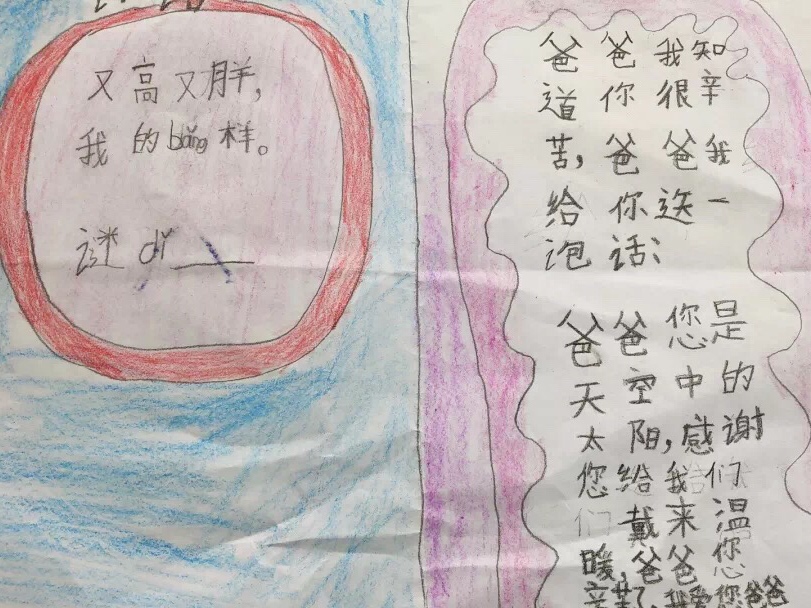 又高又胖，
我的bǎng样。
谜dǐ___
爸爸我知
道你很辛
苦，爸爸我
给你送一
泡话：
爸爸您是
天空中的
太阳，感谢
您给我们
们戴来温
暖，爸爸您
辛苦了我爱您爸爸